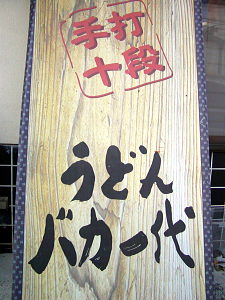 手打
十段
うどん
バカ一代